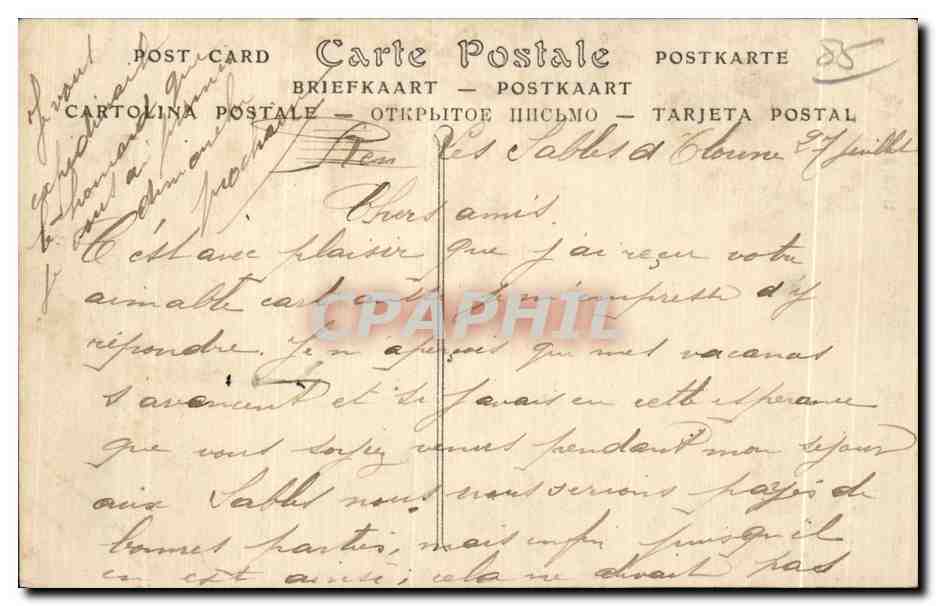 POST CARD Carte Postale POSTKARTE
85
BRIEFKAART — POSTKAART
CARTOLINA POSTALE — ОТКРЫТОЕ ПИСЬМО — TARJETA POSTAL
Je vous
expédierai
le homard que
vous ai promis
dimanche
prochain
Les Sables d'Olonne 27 juillet
Chers amis.
C'est avec plaisir que j'ai reçu votre
aimable carte je m'empresse d'y
répondre. Je m'aperçois que mes vacances
s'avancent et si j'avais eu cette espérance
que vous soyiez venus pendant mon séjour
aux Sables nous nous serions payés de
bonnes parties, mais enfin puisqu'il
en est ainsi; cela ne devait pas
CPAPHIL